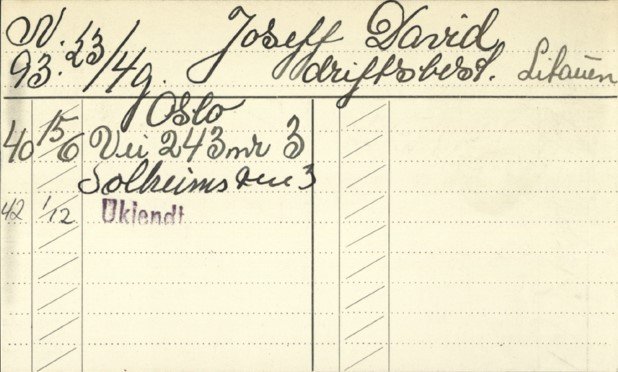 N. Joseff David
93. 23/49. driftsbest. Litauen
Oslo
40 15/6 Vei 243 nr 3
Solheimsveien 3
42 1/12 Ukjendt